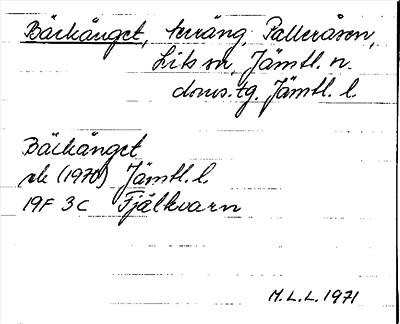 Bäckänget, terräng, Palleråsen,
Lits sn, Jämtl. n.
doms.tg. Jämtl. l.
Bäckänget
ek (1970) Jämtl. l.
19F 3c Fjälkvarn
M.L.L. 1971